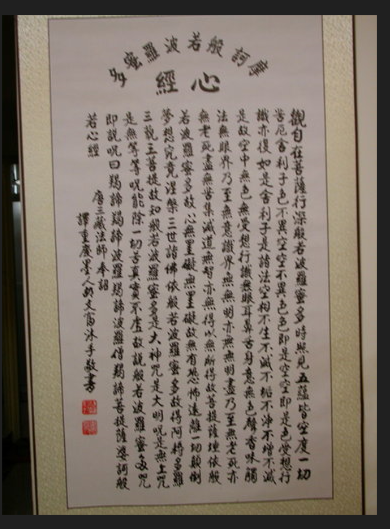 摩訶般若波羅蜜多
心經
觀自在菩薩行深般若波羅蜜多時照見五蘊皆空度一切
苦厄舍利子色不異空空不異色色即是空空即是色受想行
識亦復如是舍利子是諸法空相不生不滅不垢不淨不增不減
是故空中無色無受想行識無眼耳鼻舌身意無色聲香味觸
法無眼界乃至無意識界無無明亦無無明盡乃至無老死亦
無老死盡無苦集滅道無智亦無得以無所得故菩提薩埵依般
若波羅蜜多故心無罣礙無罣礙故無有恐怖遠離一切顛倒
夢想究竟涅槃三世諸佛依般若波羅蜜多故得阿耨多羅
三藐三菩提故知般若波羅蜜多是大神咒是大明咒是無上咒
是無等等咒能除一切苦真實不虛故說般若波羅蜜多咒
即說咒曰揭諦揭諦波羅揭諦波羅僧揭諦菩提薩婆訶般
若心經
唐三藏法師奉詔
譯重慶墨人文富沐手敬書